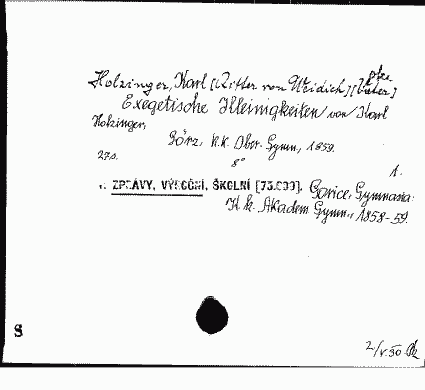 Holzinger, Karl [Ritter von Weidich]
Exegetische Kleinigkeiten / von Karl
Holzinger,
Görz, K.K. Ober-Gymn., 1859.
27 s. 8° 1.
ZPRÁVY, VÝROČNÍ, ŠKOLNÍ [73.000]. Gorice, Gymnasia.
K. k. Akadem. Gymn., 1858-59.
S
2/V.50